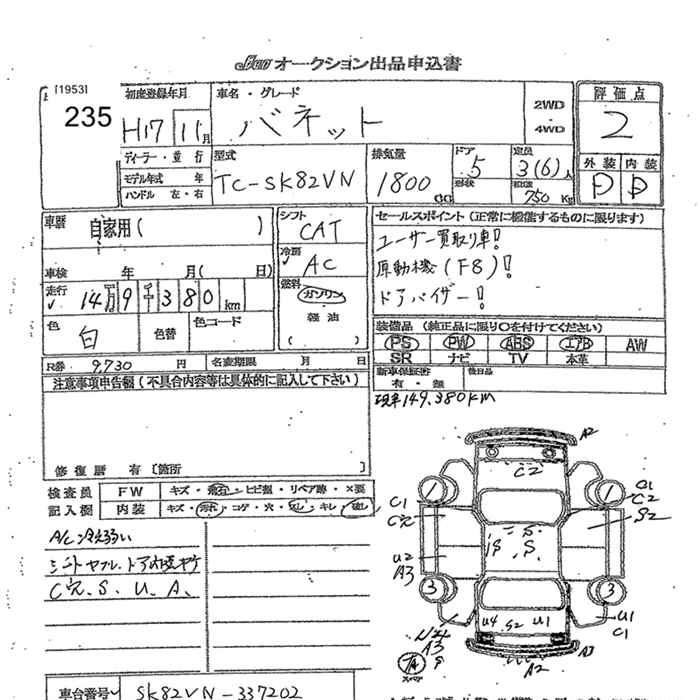 JU オークション出品申込書
[1953]
235
初度登録年月
H17 11月
車名・グレード
バネット
2WD
4WD
評価点
2
外装 内装
D D
ディーラー・並行
モデル年式 年
ハンドル 左・右
型式
TC-SK82VN
排気量
1800 CC
ドア
5
形状
定員
3(6)人
積載量
750 Kg
車歴
自家用( )
車検 年 月( 日)
走行
14万9千380km
色
白
色替
色コード
シフト
CAT
冷房
AC
燃料
ガソリン
軽油
( )
セールスポイント(正常に機能するものに限ります)
ユーザー買取り車!
原動機(F8)!
ドアバイザー!
装備品(純正品に限り○を付けてください)
PS PW ABS エアB AW
SR ナビ TV 本革
R券 9,730 円
名変期限 月 日
新車保証書
有・無
後日品
現車149,380KM
注意事項申告欄(不具合内容等は具体的に記入して下さい)
修復歴 有〔箇所 〕
検査員
記入欄
FW キズ・飛石・ヒビ割・リペア跡・×要
内装 キズ・汚れ・コゲ・穴・スレ・キレ・破れ
A/C冷え弱い
シートヤブレ、ドア内張キズ
C穴、S、U、A、
A2
C2
C1
C穴
C1
C2
S2
S
S
S
U2
A3
3
3
U4 S2 U1
U1
C1
A3
S
A2
A3
車台番号
SK82VN-337202